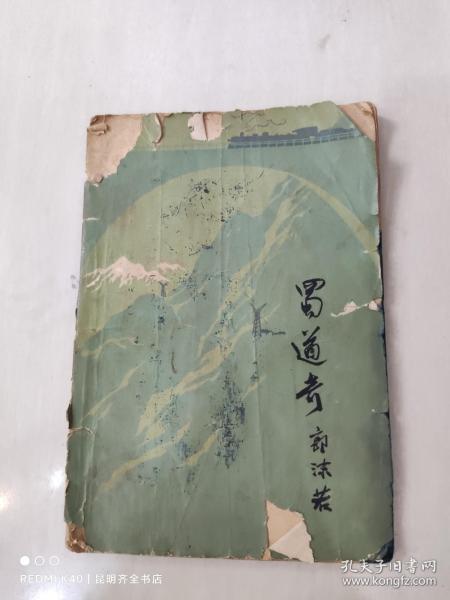 蜀道奇
郭沫若
REDMI K40 | 昆明齐全书店
孔夫子旧书网
www.kongfz.com